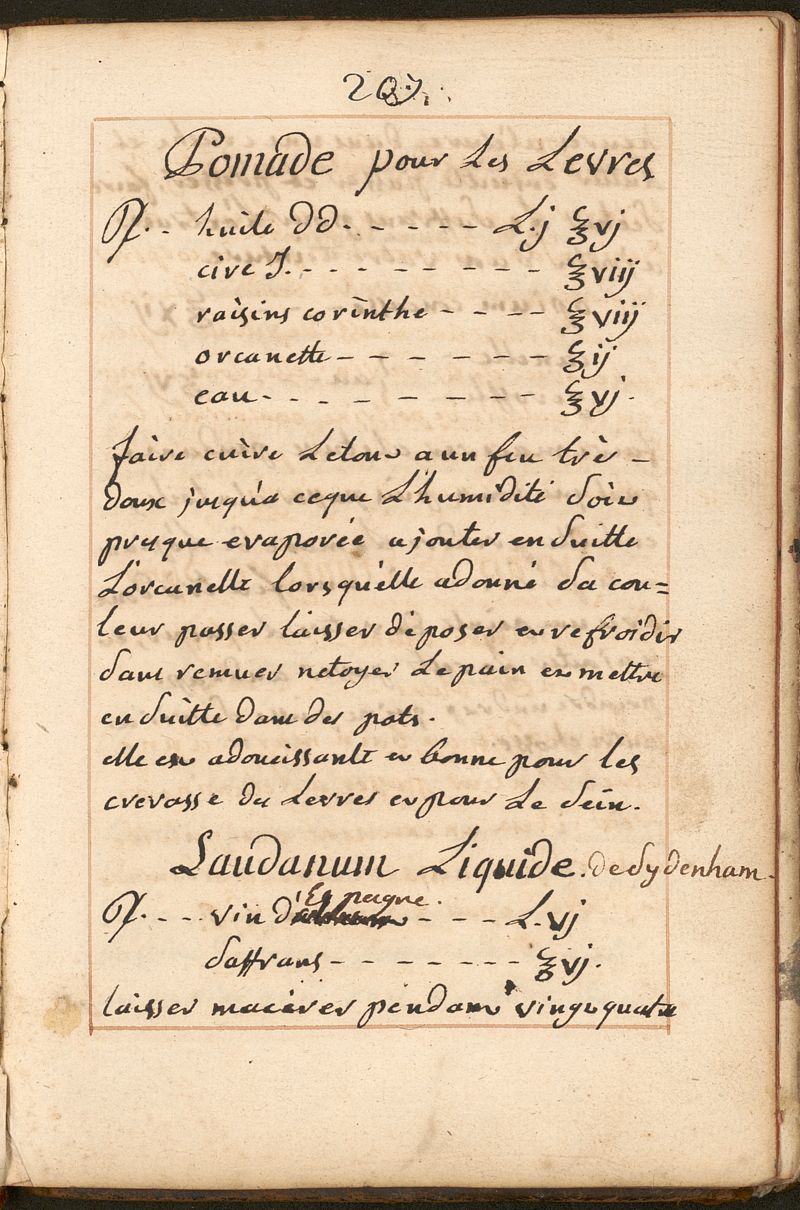 207.
Pomade pour Les Levres
℞. - huile dd. - - - - - L.j ℥vj
cire J. - - - - - - - - ℥viij
raisins corinthe - - - - ℥viij
orcanette - - - - - - ℥ij
eau - - - - - - - - ℥vj.
faire cuire Letout a un feu trè -
doux jusqu'a ceque L'humidité soit
presque evaporée ajouter en suitte
L'orcanette lorsqu'elle adonné sa cou=
leur passer laisser déposer et refroidir
sans remuer netoyer Le pain et mettre
en suitte dans des pots.
elle est adoucissante et bonne pour les
crevasse des Levres et pour Le sein.
Laudanum Liquide. de Sydenham.
Espagne.
℞. - - vin d' - - - - L.vj
saffrans - - - - - - - - ℥vj.
laisser macérer pendant vingt quatre